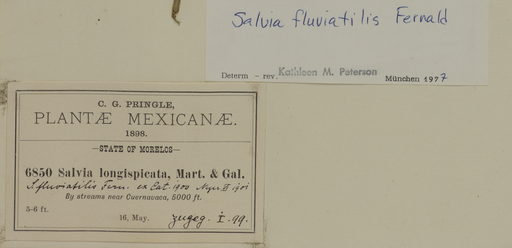 Salvia fluviatilis Fernald
Determ – rev. Kathleen M. Peterson München 1977
C. G. PRINGLE,
PLANTÆ MEXICANÆ.
1898.
—STATE OF MORELOS—
6850 Salvia longispicata, Mart. & Gal.
S. fluviatilis Fern. ex
By streams near Cuernavaca, 5000 ft.
5-6 ft.
16, May. zugeg. I. 99.